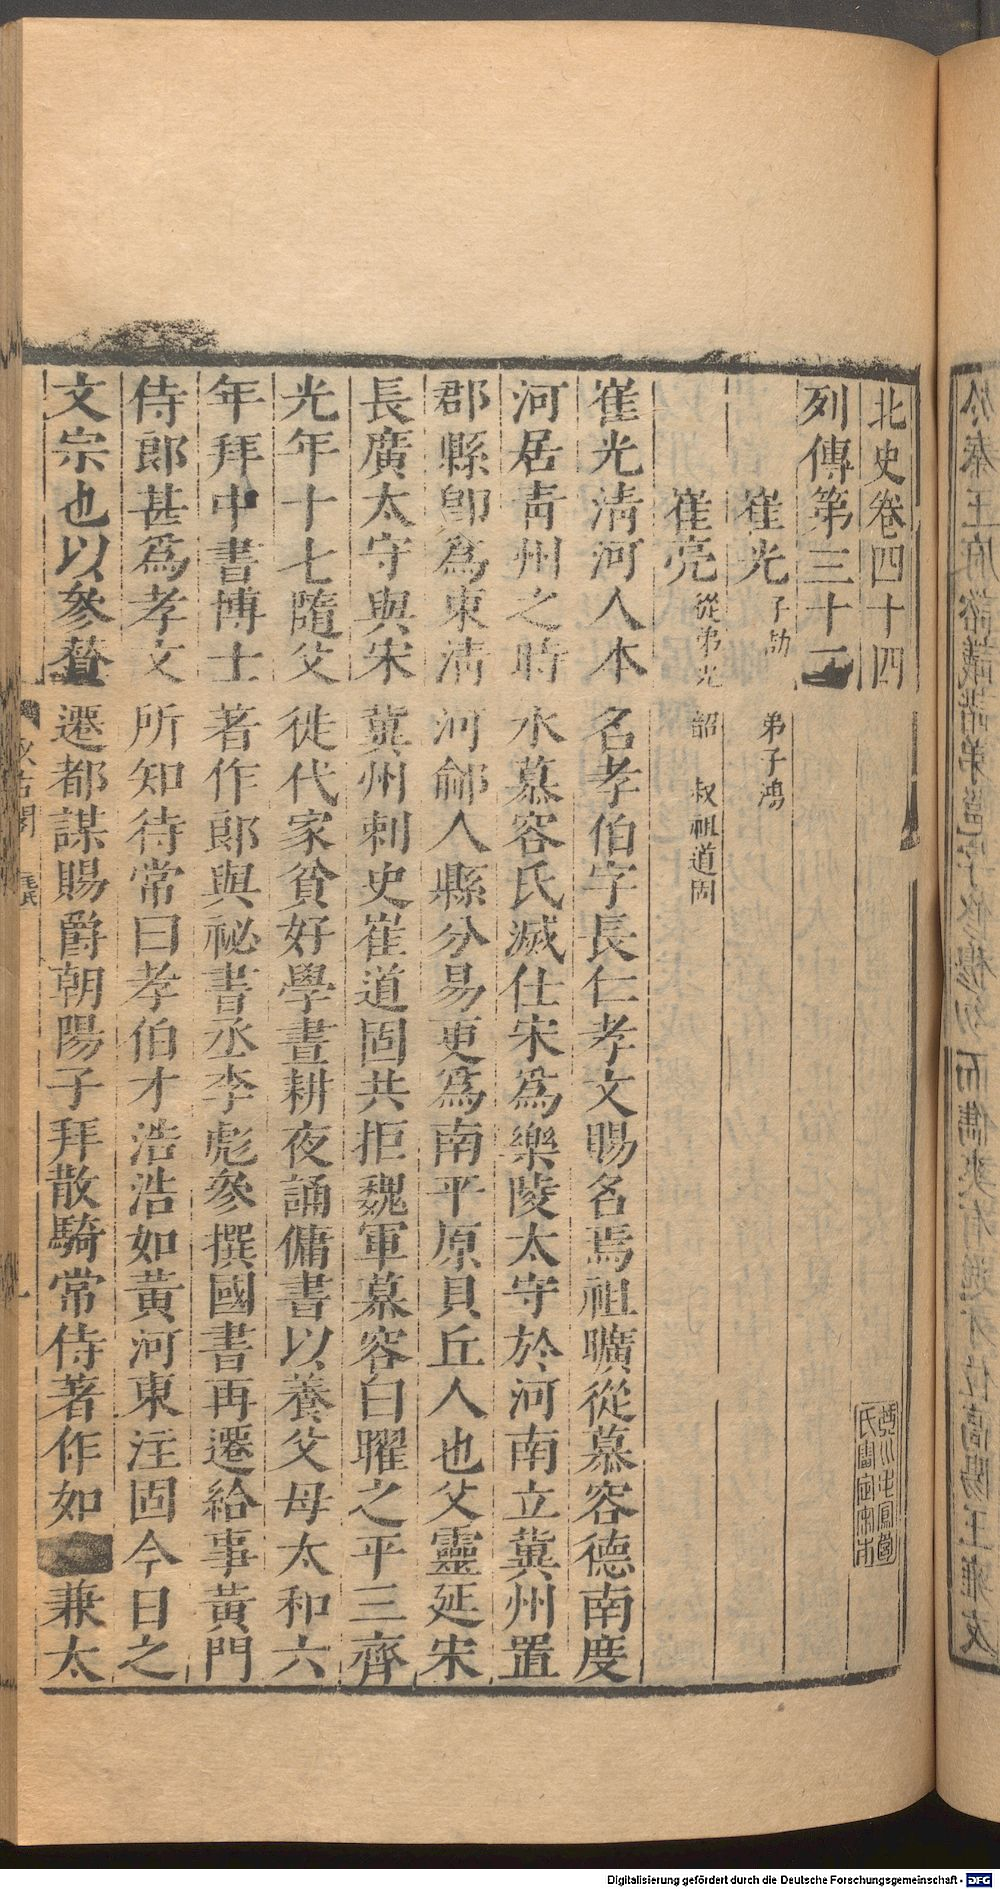 北史卷四十四
列傳第三十二
崔光 子劼 弟子鴻
崔亮 從弟光韶 叔祖道固
崔光淸河人本名孝伯字長仁孝文賜名焉祖曠從慕容德南度
河居靑州之時水慕容氏滅仕宋爲樂陵太守於河南立冀州置
郡縣卽爲東淸河鄃人縣分易更爲南平原貝丘人也父靈延宋
長廣太守與宋冀州刺史崔道固共拒魏軍慕容白曜之平三齊
光年十七隨父徙代家貧好學晝耕夜誦傭書以養父母太和六
年拜中書博士著作郎與祕書丞李彪參撰國書再遷給事黃門
侍郎甚爲孝文所知待常曰孝伯才浩浩如黃河東注固今日之
文宗也以參贊遷都謀賜爵朝陽子拜散騎常侍著作如兼太
汲古閣
毛氏
一
Digitalisierung gefördert durch die Deutsche Forschungsgemeinschaft - DFG